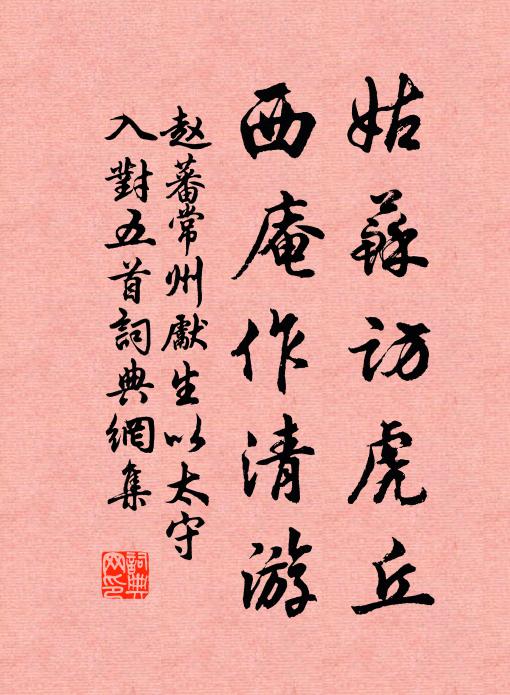 姑蘇訪虎丘
西庵作清游
赵蕃常州獻生以太守
入對五首詞典網集
詞典網印